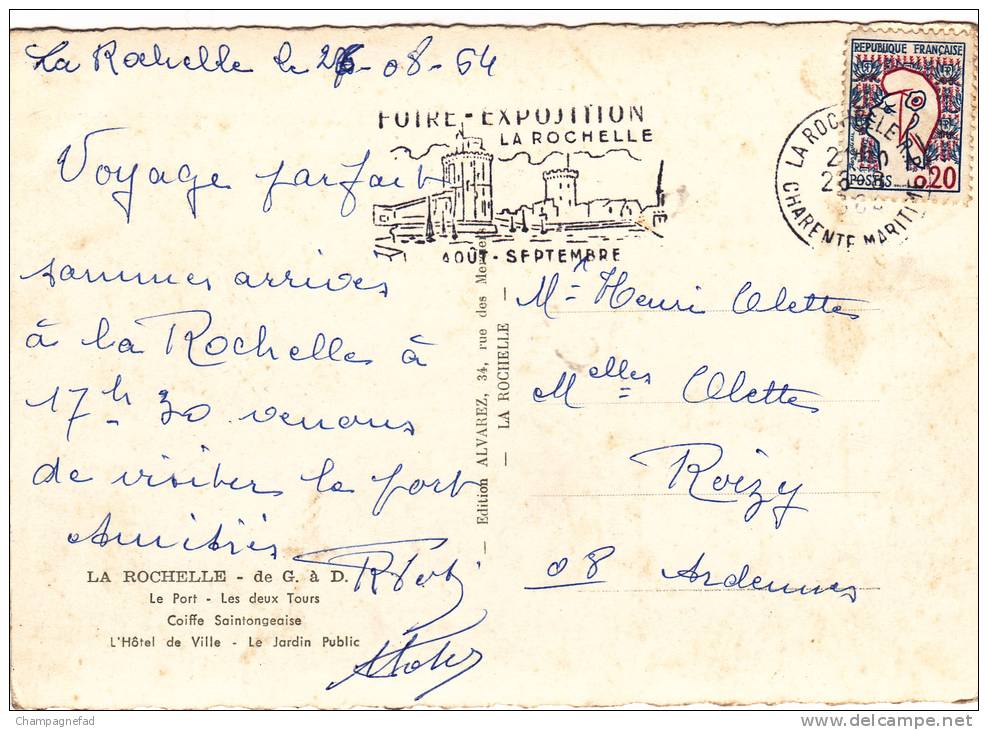 La Rochelle le 26-08-64
FOIRE-EXPOSITION
LA ROCHELLE
AOÛT-SEPTEMBRE
REPUBLIQUE FRANÇAISE
POSTES 0,20
LA ROCHELLE
CHARENTE MARITIME
Voyage parfait
sommes arrives
à la Rochelle à
17h 30 venons
de visiter le port
Amitiés
LA ROCHELLE - de G. à D.
Le Port - Les deux Tours
Coiffe Saintongeaise
L'Hôtel de Ville - Le Jardin Public
— Edition ALVAREZ, 34, rue des Merciers
— LA ROCHELLE —
Mr Henri Olettes
Melles Olettes
Roizy
08 Ardennes
Champagnefad
www.delcampe.net